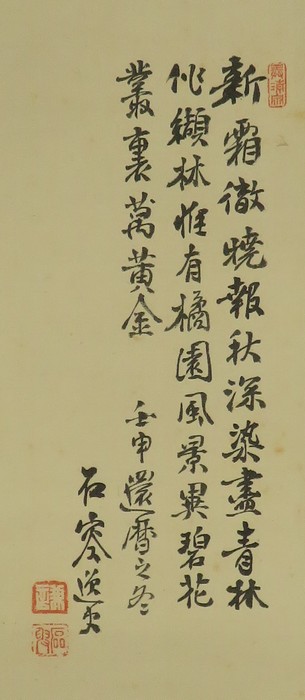 新霜徹曉報秋深染盡青林
作纈林惟有橘園風景異碧花
叢裏萬黃金
壬申還曆之冬
石逸史